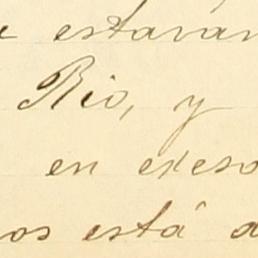 estavan
Rio, y
en exeso
os está a